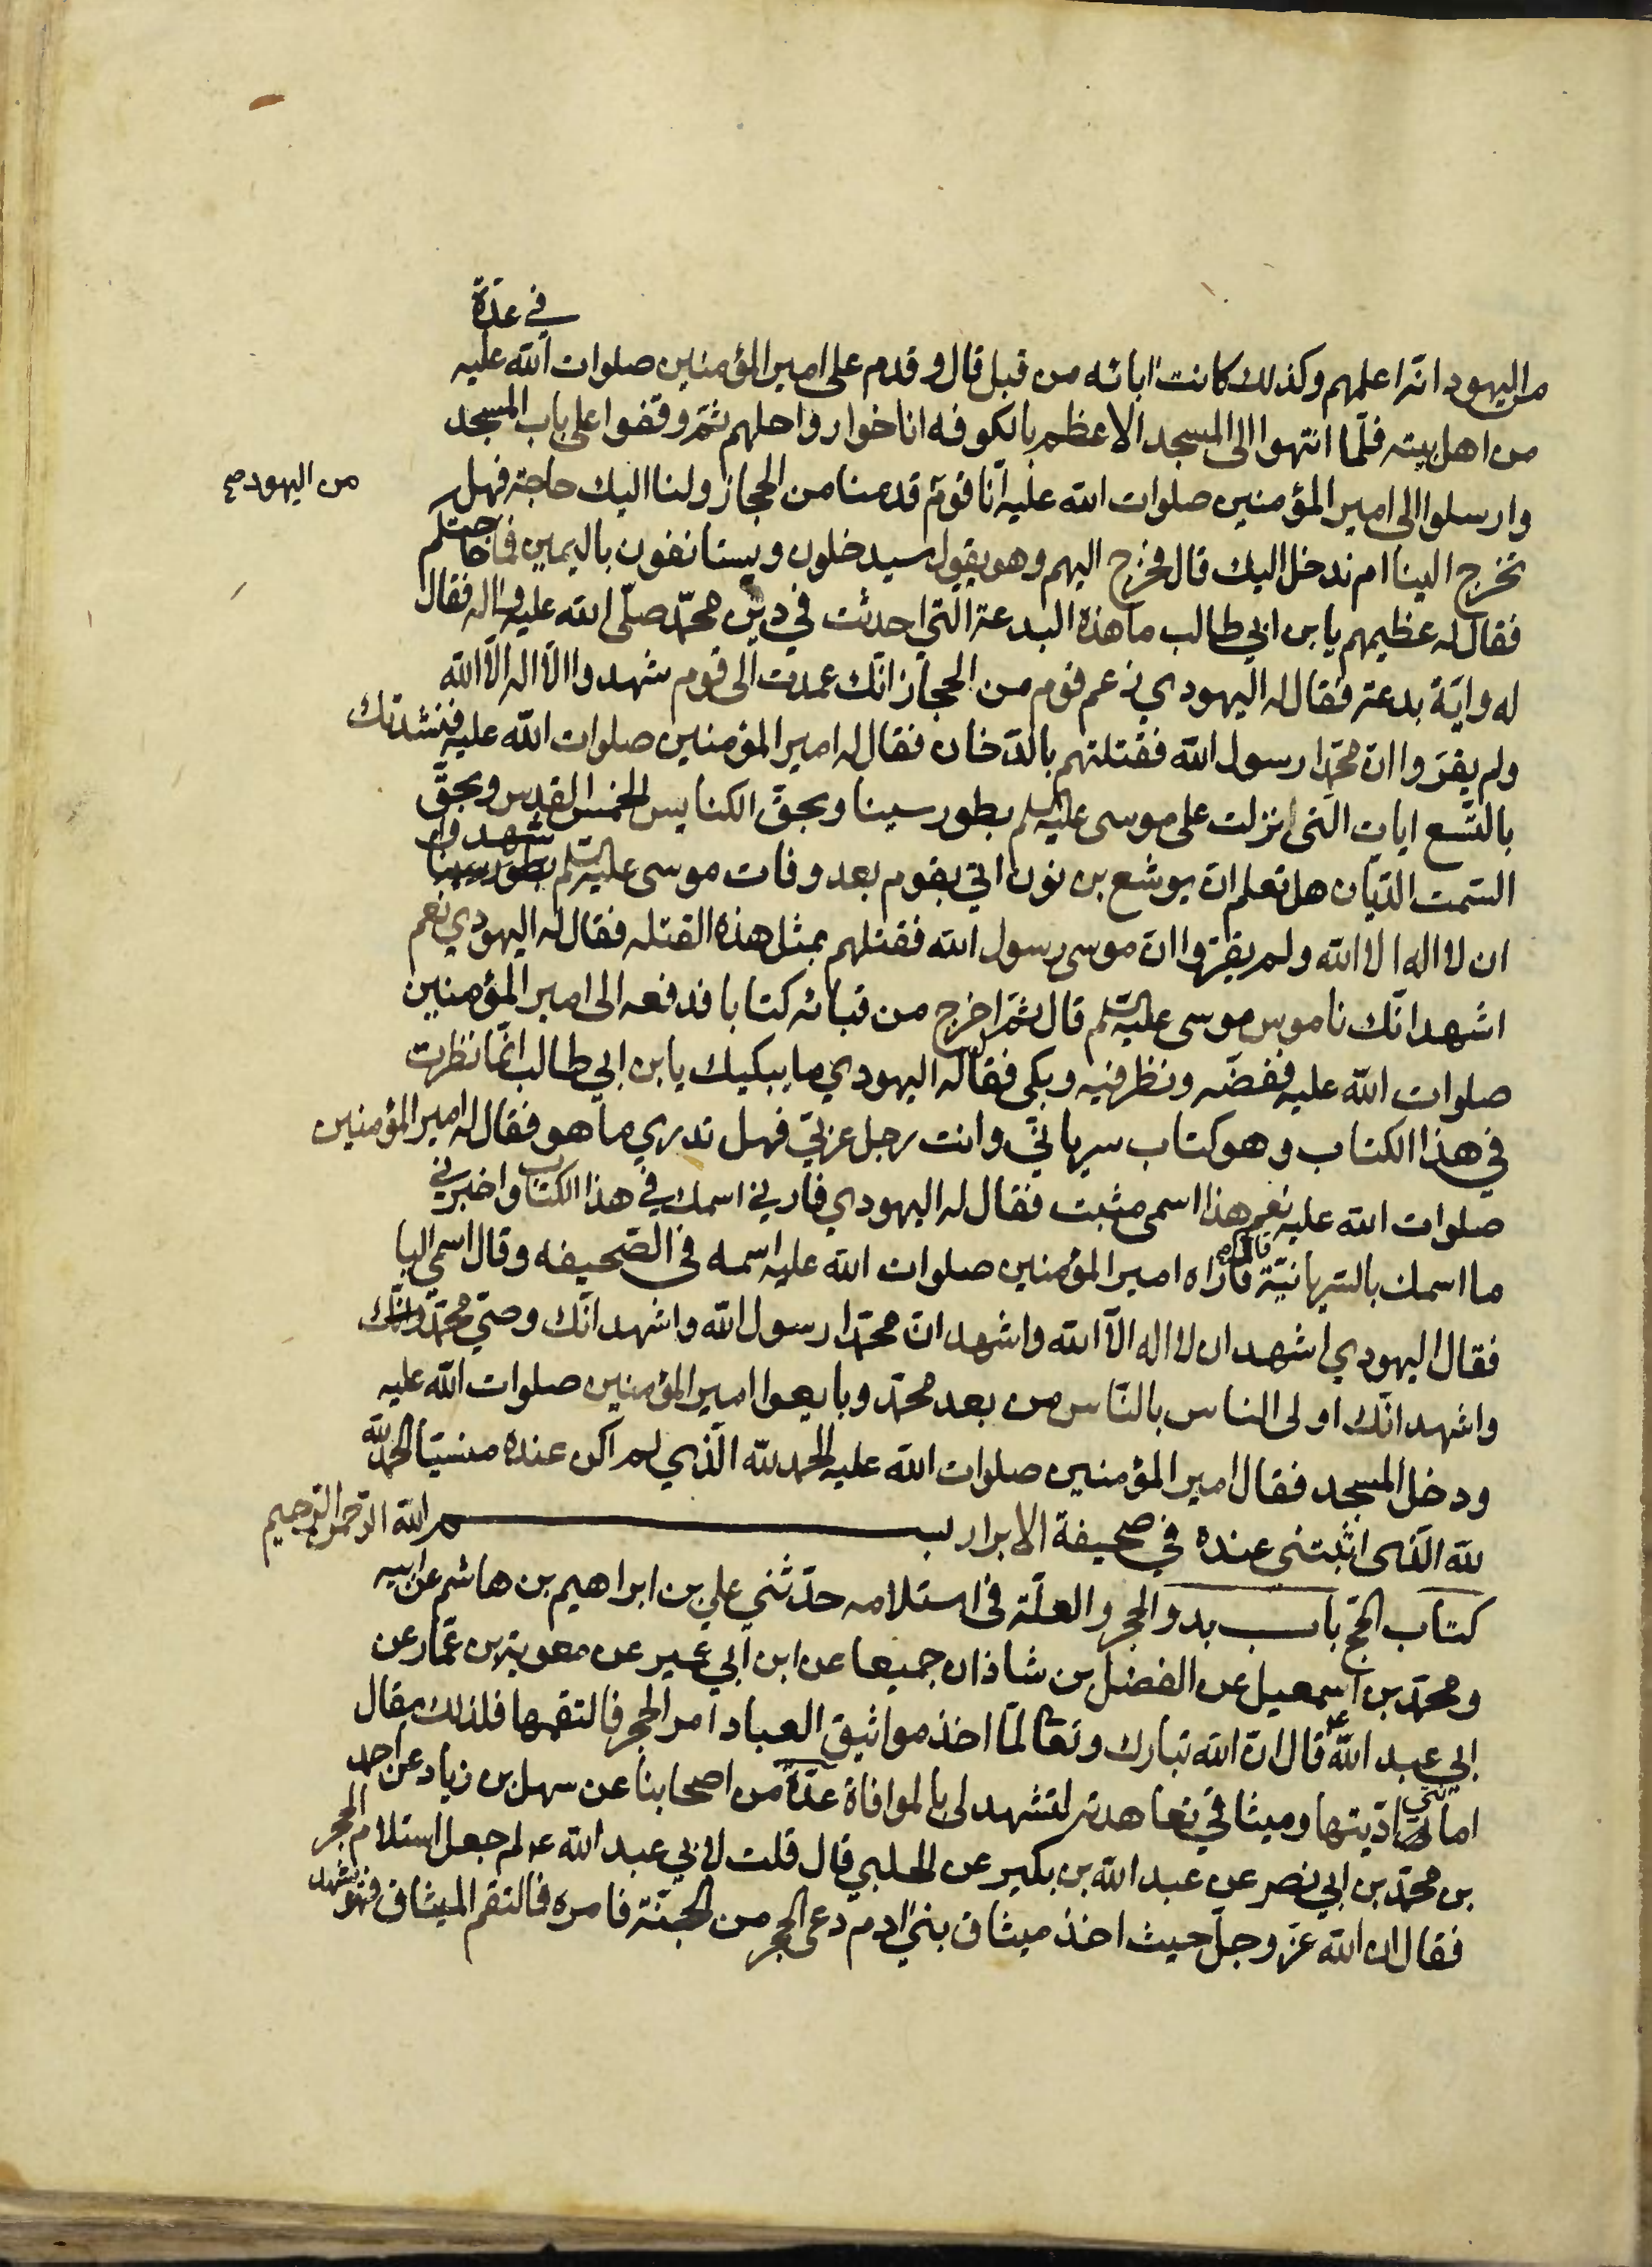 في عدة
من اليهود انه اعلمهم وكذلك كانت اباؤه من قبل قال وقدم على امير المؤمنين صلوات الله عليه
من اهل بيته فلمّا انتهوا الى المسجد الاعظم بالكوفه اناخوا رواحلهم ثمّ وقفوا على باب المسجد
وارسلوا الى امير المؤمنين صلوات الله عليه انّا قوم قدمنا من الحجاز ولنا اليك حاجة فهل
من اليهود صح
تخرج الينا ام ندخل اليك قال فخرج اليهم وهو يقول سيدخلون ويستانفون باليمين فما حاجتكم
فقال له عظيمهم يا بن ابي طالب ما هذه البدعة التي احدثت في دين محمّد صلّى الله عليه واله فقال
له وايّة بدعة فقال له اليهودي زعم قوم من الحجاز انّك عمدت الى قوم شهدوا الاّ اله الاّ الله
ولم يقرّوا انّ محمّدا رسول الله فقتلتهم بالدّخان فقال له امير المؤمنين صلوات الله عليه فنشدتك
بالتّسع ايات الّتى انزلت على موسى عليه السلم بطور سينا وبحقّ الكنايس الخمس القدس وبحقّ
السّمت الدّيّان هل تعلم انّ يوشع بن نون اتي بقوم بعد وفات موسى عليه السلم شهدوا
ان لا اله الا الله ولم يقرّوا انّ موسى رسول الله فقتلهم بمثل هذه القتله فقال له اليهودي نعم
اشهد انّك ناموس موسى عليه السّلم قال ثمّ اخرج من قبائه كتابا فدفعه الى امير المؤمنين
صلوات الله عليه ففضّه ونظر فيه وبكى فقال له اليهودي ما يبكيك يا بن ابي طالب انّما نظرت
في هذا الكتاب وهو كتاب سريانيّ وانت رجل عربيّ فهل تدري ما هو فقال له امير المؤمنين
صلوات الله عليه نعم هذا اسمى مثبت فقال له اليهودي فارني اسمك في هذا الكتاب واخبرني
ما اسمك بالسّريانيّة قال فاراه امير المؤمنين صلوات الله عليه اسمه فى الصّحيفه وقال اسمي اليا
فقال اليهودي اشهد ان لا اله الاّ الله واشهد انّ محمّدا رسول الله واشهد انّك وصيّ محمّد وانّك
واشهد انّك اولى الناس بالنّاس من بعد محمّد وبايعوا امير المؤمنين صلوات الله عليه
ودخل المسجد فقال امير المؤمنين صلوات الله عليه الحمد لله الّذي لم اكن عنده منسيّا الحمد لله
لله الّذى اثبتنى عنده في صحيفة الابرار بسم الله الرّحمن الرّحيم
كتاب الحجّ باب بدو الحجر والعلّة فى استلامه حدّثني علي بن ابراهيم بن هاشم عن ابيه
ومحمّد بن اسمعيل عن الفضل بن شاذان جميعا عن ابن ابي عمير عن معوية بن عمّار عن
ابي عبد الله ع قال انّ الله تبارك وتعالى لمّا اخذ مواثيق العباد امر الحجر فالتقمها فلذلك يقال
امانتي ادّيتها وميثاقي تعاهدته لتشهد لى بالموافاة عدّة من اصحابنا عن سهل بن زياد عن احمد
بن محمّد بن ابي نصر عن عبد الله بن بكير عن الحلبي قال قلت لابي عبد الله ع لم جعل استلام الحجر
فقال ان الله عزّ وجلّ حيث اخذ ميثاق بني ادم دعى الحجر من الجنّة فامره فالتقم الميثاق فهو يشهد